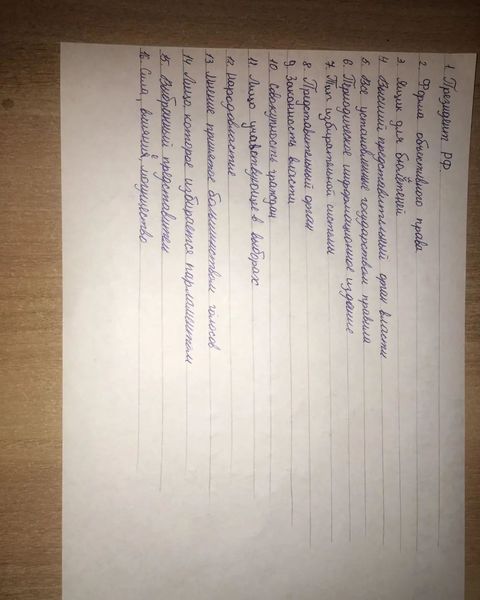 1. Президент РФ
2. Форма объективного права
3. Ящик для бюлетеней
4. Высший представительный орган власти
5. Все установленные государством правила
6. Периодическое информационное издание
7. Тип избирательной системы
8. Представительный орган
9. Законность власти
10. Совокупность граждан
11. Лицо учавствующее в выборах
12. Народовластие
13. Мнение принятое большинством голосов
14. Лицо, которое избирается парламентом
15. Выбранный представитель
16. Сила, влияния, могущество